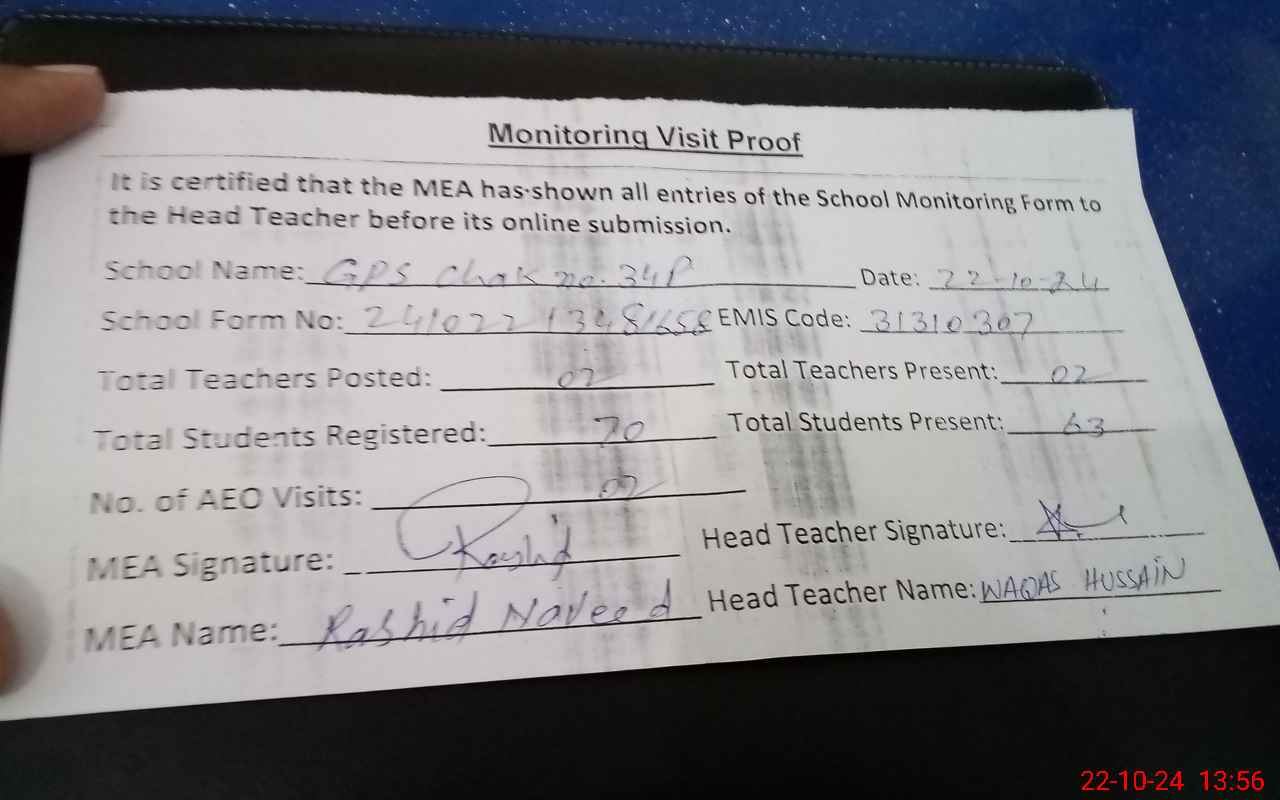 Monitoring Visit Proof
It is certified that the MEA has shown all entries of the School Monitoring Form to
the Head Teacher before its online submission.
School Name: GPS Chak no. 34P Date: 22-10-24
School Form No: 24102213481658 EMIS Code: 31310307
Total Teachers Posted: 02 Total Teachers Present: 02
Total Students Registered: 70 Total Students Present: 63
No. of AEO Visits: 02
MEA Signature: Rashid Head Teacher Signature:
MEA Name: Rashid Naveed Head Teacher Name: WAQAS HUSSAIN
22-10-24 13:56